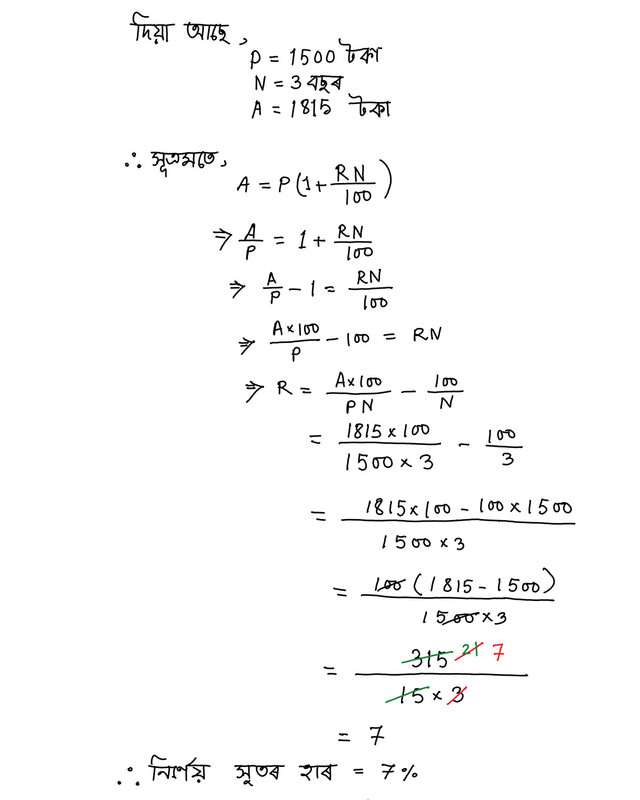 দিয়া আছে,
P = 1500 টকা
N = 3 বছৰ
A = 1815 টকা
∴ সূত্ৰমতে,
A = P(1 + RN/100)
⇒ A/P = 1 + RN/100
⇒ A/P - 1 = RN/100
⇒ A×100/P - 100 = RN
⇒ R = A×100/PN - 100/N
= 1815×100/1500×3 - 100/3
= 1815×100 - 100×1500/1500×3
= 100(1815 - 1500)/1500×3
= 315 21 7/15×3
= 7
∴ নিৰ্ণেয় সূতৰ হাৰ = 7%